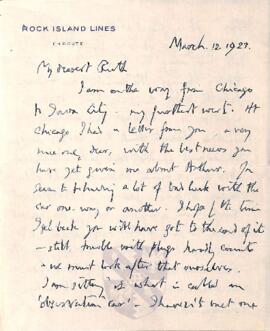 ROCK ISLAND LINES
EN ROUTE
March. 12. 1923.
My dearest Ruth
I am on the way from Chicago
to Iowa City - my furthest west. At
Chicago I had a letter from you, a very
nice one, dear, with the best news you
have yet given me about Arthur. You
seem to be having a lot of bad luck with the
car one way or another. I hope by the time
I get back you will have got to the end of it
- still, trouble with plugs hardly counts
- we must look after that ourselves.
I am sitting in what is called an
'observation car' - I haven't met one